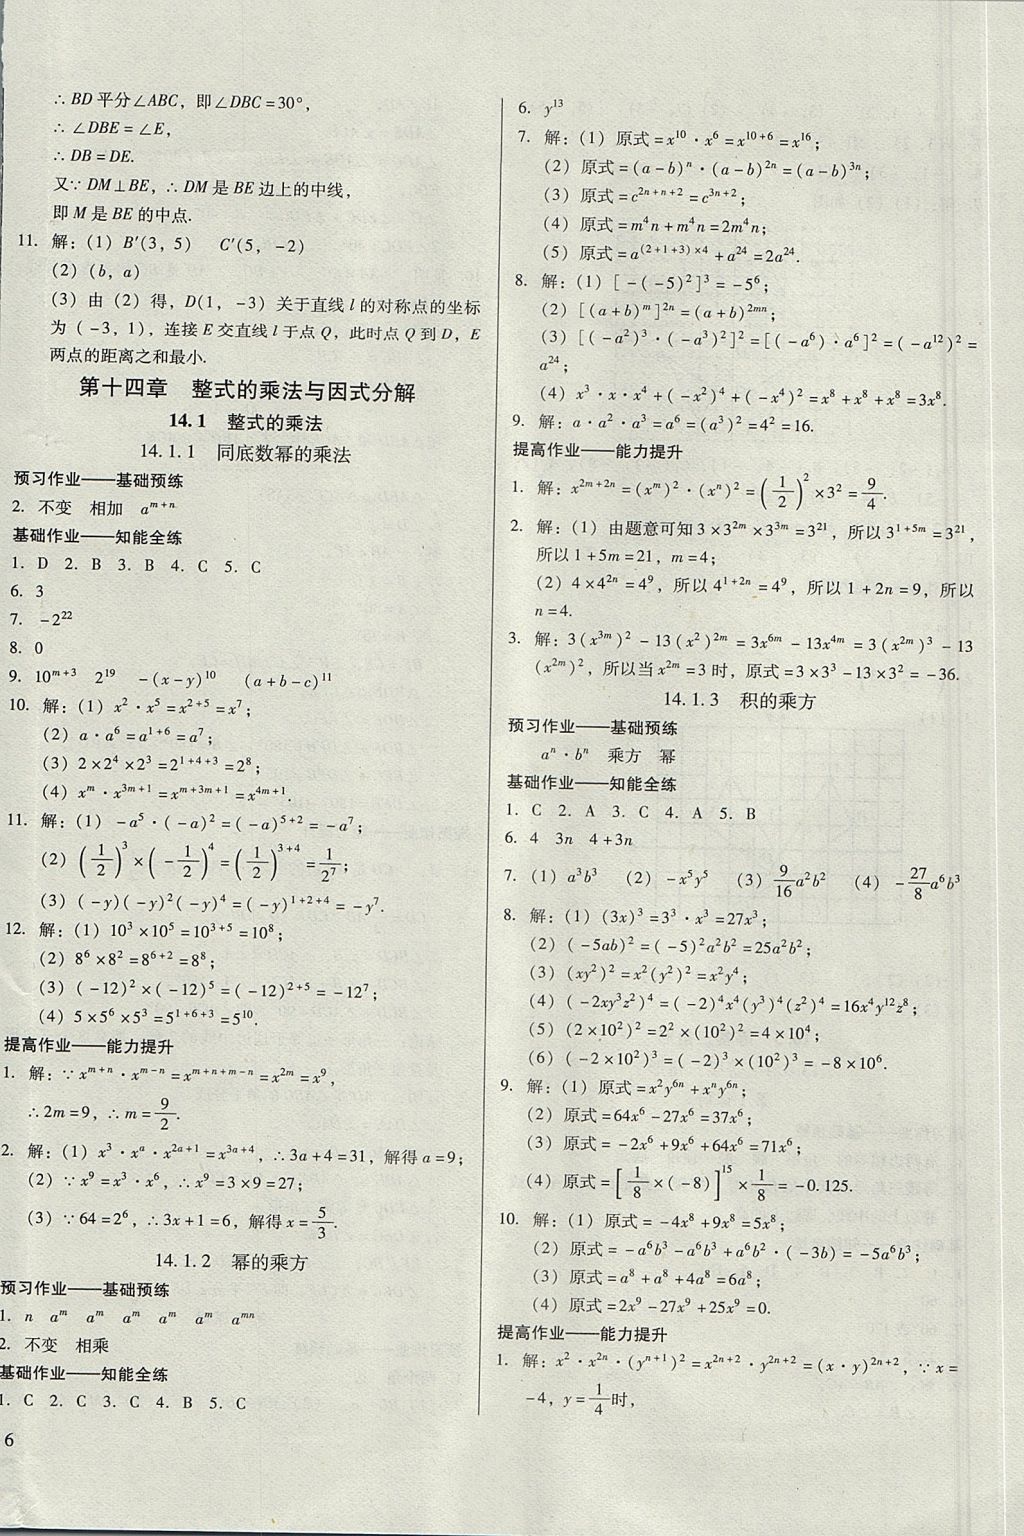 ∴ BD 平分∠ABC，即∠DBC=30°，
∴ ∠DBE=∠E，
∴ DB=DE.
又∵ DM⊥BE，∴ DM 是 BE 边上的中线，
即 M 是 BE 的中点.
11. 解：(1) B′(3，5)　C′(5，-2)
(2) (b，a)
(3) 由 (2) 得，D(1，-3) 关于直线 l 的对称点的坐标
为 (-3，1)，连接 E 交直线 l 于点 Q，此时点 Q 到 D，E
两点的距离之和最小.
第十四章　整式的乘法与因式分解
14.1　整式的乘法
14.1.1　同底数幂的乘法
预习作业——基础预练
2. 不变　相加　a^{m+n}
基础作业——知能全练
1. D　2. B　3. B　4. C　5. C
6. 3
7. -2^{22}
8. 0
9. 10^{m+3}　2^{19}　-(x-y)^{10}　(a+b-c)^{11}
10. 解：(1) x^2·x^5=x^{2+5}=x^7；
(2) a·a^6=a^{1+6}=a^7；
(3) 2×2^4×2^3=2^{1+4+3}=2^8；
(4) x^m·x^{3m+1}=x^{m+3m+1}=x^{4m+1}.
11. 解：(1) -a^5·(-a)^2=(-a)^{5+2}=-a^7；
(2) (1/2)^3×(-1/2)^4=(1/2)^{3+4}=1/2^7；
(3) (-y)(-y)^2(-y)^4=(-y)^{1+2+4}=-y^7.
12. 解：(1) 10^3×10^5=10^{3+5}=10^8；
(2) 8^6×8^2=8^{6+2}=8^8；
(3) (-12)^2×(-12)^5=(-12)^{2+5}=-12^7；
(4) 5×5^6×5^3=5^{1+6+3}=5^{10}.
提高作业——能力提升
1. 解：∵ x^{m+n}·x^{m-n}=x^{m+n+m-n}=x^{2m}=x^9，
∴ 2m=9，∴ m=9/2.
2. 解：(1) x^3·x^a·x^{2a+1}=x^{3a+4}，∴ 3a+4=31，解得 a=9；
(2) ∵ x^9=x^3·x^6，∴ x^9=3×9=27；
(3) ∵ 64=2^6，∴ 3x+1=6，解得 x=5/3.
14.1.2　幂的乘方
预习作业——基础预练
1. n　a^m　a^m　a^m　a^m　a^m　a^{mn}
2. 不变　相乘
基础作业——知能全练
1. C　2. C　3. C　4. B　5. C
6
6. y^{13}
7. 解：(1) 原式=x^{10}·x^6=x^{10+6}=x^{16}；
(2) 原式=(a-b)^n·(a-b)^{2n}=(a-b)^{3n}；
(3) 原式=c^{2n+n+2}=c^{3n+2}；
(4) 原式=m^4n+m^4n=2m^4n；
(5) 原式=a^{(2+1+3)×4}+a^{24}=2a^{24}.
8. 解：(1) [-(-5)^2]^3=-5^6；
(2) [(a+b)^m]^{2n}=(a+b)^{2mn}；
(3) [(-a^2)^3·(-a^3)^2]^2=[(-a^6)·a^6]^2=(-a^{12})^2=
a^{24}；
(4) x^3·x·x^4+(-x^2)^4+(-x^4)^2=x^8+x^8+x^8=3x^8.
9. 解：a·a^2·a^3=a^6=(a^3)^2=4^2=16.
提高作业——能力提升
1. 解：x^{2m+2n}=(x^m)^2·(x^n)^2=(1/2)^2×3^2=9/4.
2. 解：(1) 由题意可知 3×3^{2m}×3^{3m}=3^{21}，所以 3^{1+5m}=3^{21}，
所以 1+5m=21，m=4；
(2) 4×4^{2n}=4^9，所以 4^{1+2n}=4^9，所以 1+2n=9，所以
n=4.
3. 解：3(x^{3m})^2-13(x^2)^{2m}=3x^{6m}-13x^{4m}=3(x^{2m})^3-13
(x^{2m})^2，所以当 x^{2m}=3 时，原式=3×3^3-13×3^2=-36.
14.1.3　积的乘方
预习作业——基础预练
a^n·b^n　乘方　幂
基础作业——知能全练
1. C　2. A　3. C　4. A　5. B
6. 4　3n　4+3n
7. (1) a^3b^3　(2) -x^5y^5　(3) 9/16a^2b^2　(4) -27/8a^6b^3
8. 解：(1) (3x)^3=3^3·x^3=27x^3；
(2) (-5ab)^2=(-5)^2a^2b^2=25a^2b^2；
(3) (xy^2)^2=x^2(y^2)^2=x^2y^4；
(4) (-2xy^3z^2)^4=(-2)^4x^4(y^3)^4(z^2)^4=16x^4y^{12}z^8；
(5) (2×10^2)^2=2^2×(10^2)^2=4×10^4；
(6) (-2×10^2)^3=(-2)^3×(10^2)^3=-8×10^6.
9. 解：(1) 原式=x^2y^{6n}+x^ny^{6n}；
(2) 原式=64x^6-27x^6=37x^6；
(3) 原式=-2x^6+9x^6+64x^6=71x^6；
(4) 原式=[1/8×(-8)]^{15}×1/8=-0.125.
10. 解：(1) 原式=-4x^8+9x^8=5x^8；
(2) 原式=-a^6b^3-a^6b^3+a^6b^2·(-3b)=-5a^6b^3；
(3) 原式=a^8+a^8+4a^8=6a^8；
(4) 原式=2x^9-27x^9+25x^9=0.
提高作业——能力提升
1. 解：x^2·x^{2n}·(y^{n+1})^2=x^{2n+2}·y^{2n+2}=(x·y)^{2n+2}，∵ x=
-4，y=1/4时，